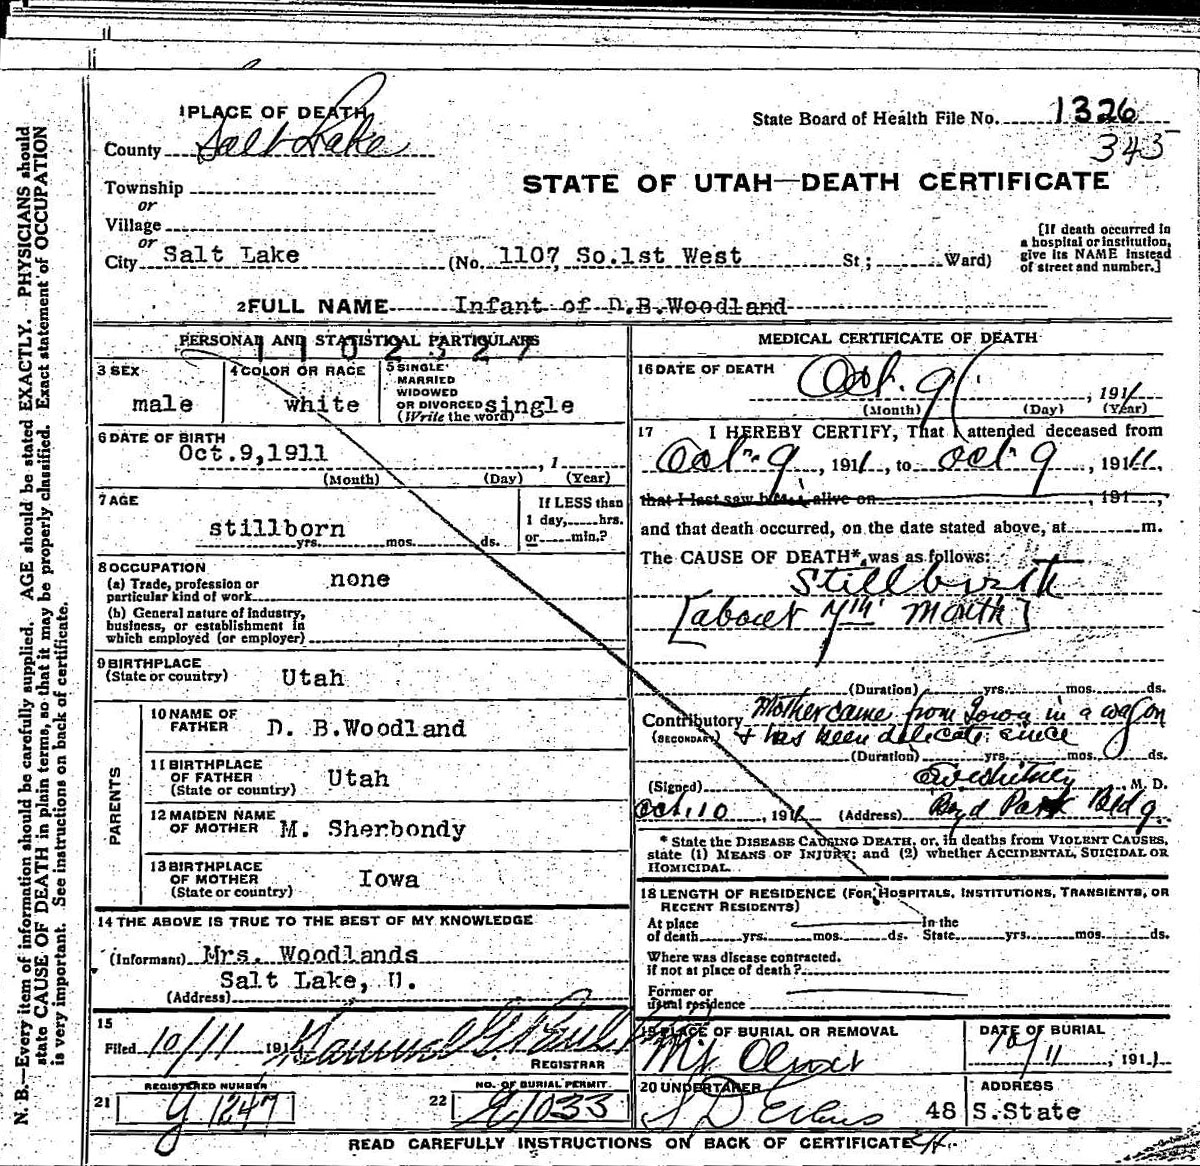 1 PLACE OF DEATH
State Board of Health File No. 1326
343
County Salt Lake
STATE OF UTAH—DEATH CERTIFICATE
Township
or
Village
or
City Salt Lake (No. 1107 So.1st West St; Ward)
[If death occurred in
a hospital or institution,
give its NAME instead
of street and number.]
2 FULL NAME Infant of D.B.Woodland
PERSONAL AND STATISTICAL PARTICULARS
1102327
3 SEX
male
4 COLOR OR RACE
white
5 SINGLE
MARRIED
WIDOWED
OR DIVORCED single
(Write the word)
6 DATE OF BIRTH
Oct.9,1911 , 1
(Month) (Day) (Year)
7 AGE
stillborn
yrs. mos. ds.
If LESS than
1 day, hrs.
or min.?
8 OCCUPATION
(a) Trade, profession or
particular kind of work none
(b) General nature of industry,
business, or establishment in
which employed (or employer)
9 BIRTHPLACE
(State or country) Utah
PARENTS
10 NAME OF
FATHER D. B.Woodland
11 BIRTHPLACE
OF FATHER
(State or country) Utah
12 MAIDEN NAME
OF MOTHER M. Sherbondy
13 BIRTHPLACE
OF MOTHER
(State or country) Iowa
14 THE ABOVE IS TRUE TO THE BEST OF MY KNOWLEDGE
(Informant) Mrs. Woodlands
Salt Lake, U.
(Address)
15
Filed 10/11 191
REGISTRAR
REGISTERED NUMBER
21 1247
NO. OF BURIAL PERMIT
22 1033
MEDICAL CERTIFICATE OF DEATH
16 DATE OF DEATH
Oct. 9 , 1911
(Month) (Day) (Year)
17 I HEREBY CERTIFY, That I attended deceased from
Oct. 9 , 1911, to Oct. 9 , 1911,
that I last saw h i alive on 191 ,
and that death occurred, on the date stated above, at m.
The CAUSE OF DEATH* was as follows:
Stillbirth
[about 7th month]
(Duration) yrs. mos. ds.
Contributory Mother came from Iowa in a wagon
(SECONDARY) & has been delicate since
(Duration) yrs. mos. ds.
(Signed) Whitney M. D.
Oct. 10 , 191 (Address) Boyd Park Bldg.
* State the DISEASE CAUSING DEATH, or, in deaths from VIOLENT CAUSES,
state (1) MEANS OF INJURY; and (2) whether ACCIDENTAL, SUICIDAL OR
HOMICIDAL.
18 LENGTH OF RESIDENCE (FOR HOSPITALS, INSTITUTIONS, TRANSIENTS, OR
RECENT RESIDENTS)
At place In the
of death yrs. mos. ds. State yrs. mos. ds.
Where was disease contracted.
if not at place of death?
Former or
usual residence
19 PLACE OF BURIAL OR REMOVAL
Mt Olivet
DATE OF BURIAL
10/11 , 1911
20 UNDERTAKER
S D Evans
ADDRESS
48 S.State
READ CAREFULLY INSTRUCTIONS ON BACK OF CERTIFICATE
N. B.—Every item of information should be carefully supplied. AGE should be stated EXACTLY. PHYSICIANS should
state CAUSE OF DEATH in plain terms, so that it may be properly classified. Exact statement of OCCUPATION
is very important. See instructions on back of certificate.